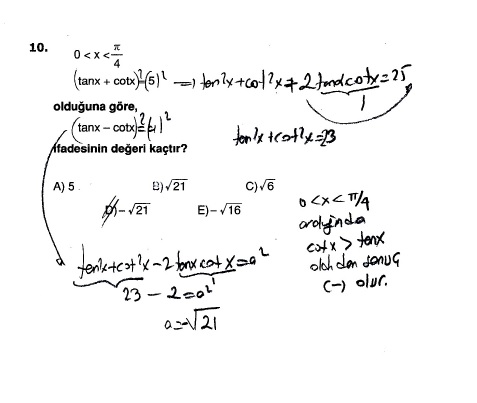 10.
0 < x < π/4
(tanx + cotx)²=(5)² ⟹ tan²x+cot²x+2tanxcotx=25
1
olduğuna göre,
(tanx – cotx)²=(a)²
tan²x+cot²x=23
ifadesinin değeri kaçtır?
A) 5 B) √21 C) √6
D) –√21 E) –√16
0<x<π/4
aralığında
cotx > tanx
olduğundan sonuç
(-) olur.
tan²x+cot²x-2tanxcotx=a²
1
23-2=a²
a=-√21